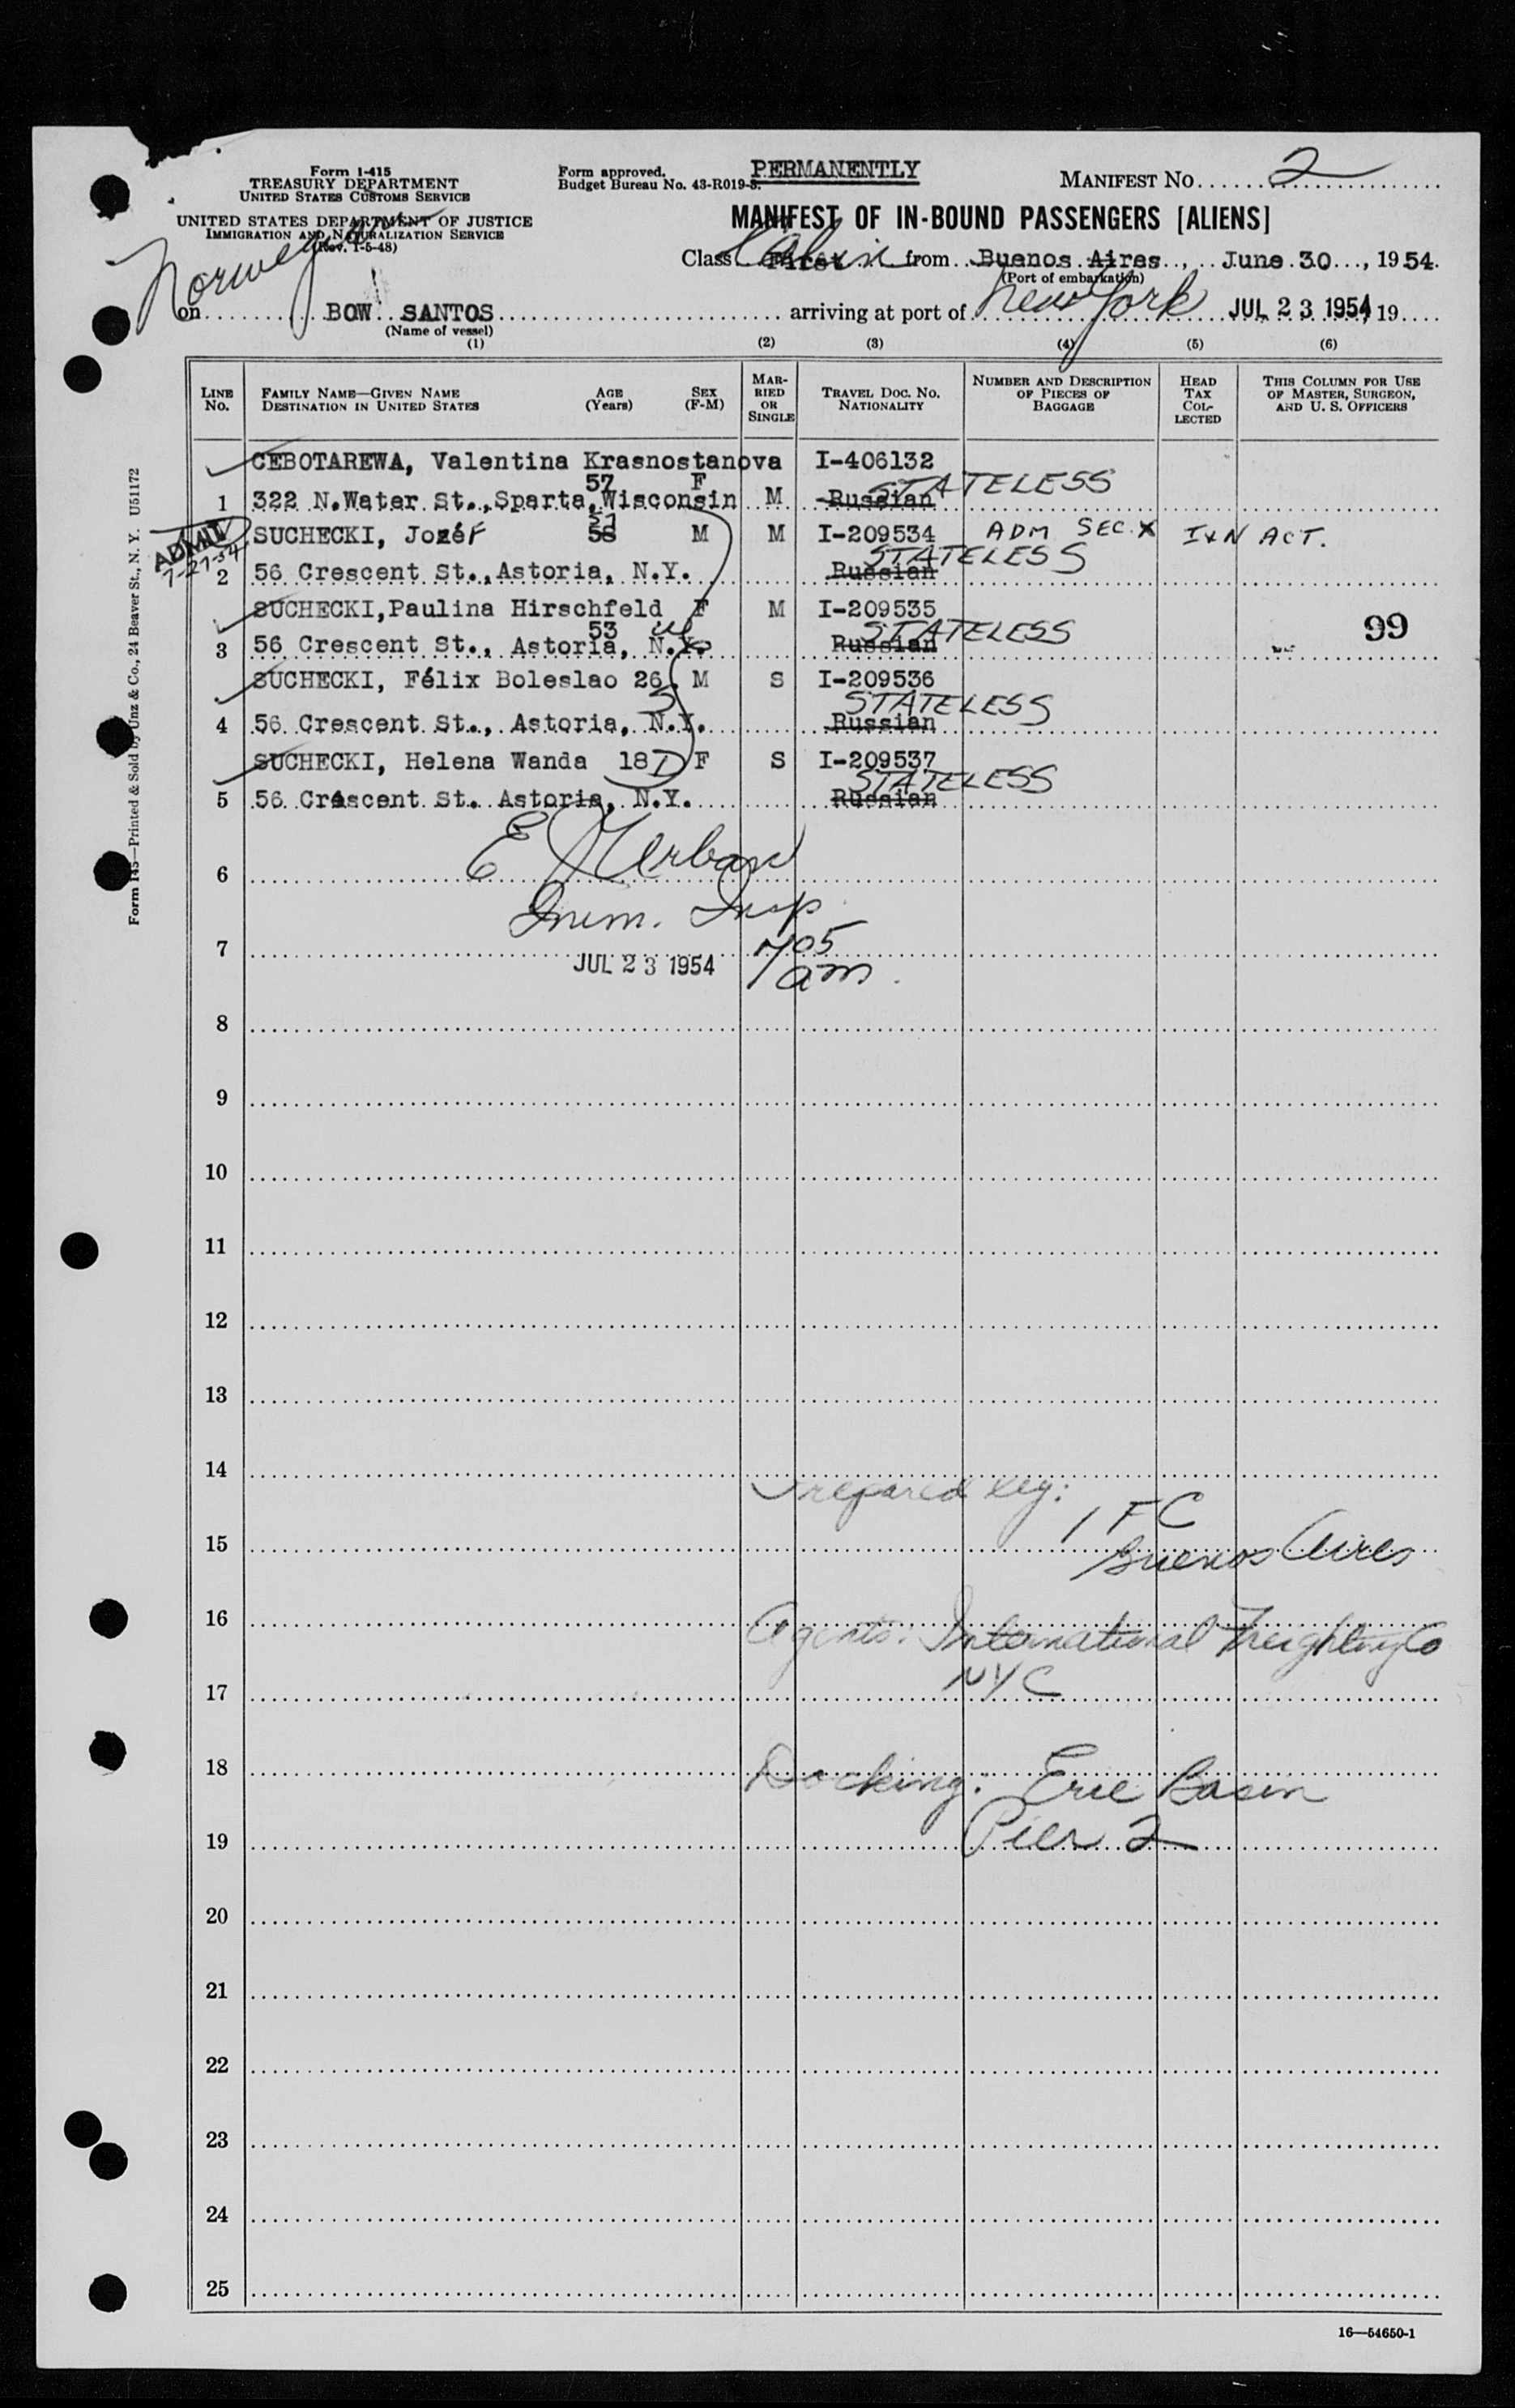 Form I-415
TREASURY DEPARTMENT
UNITED STATES CUSTOMS SERVICE
UNITED STATES DEPARTMENT OF JUSTICE
IMMIGRATION AND NATURALIZATION SERVICE
(Rev. 1-5-48)
Form approved.
Budget Bureau No. 43-R019-3.
PERMANENTLY
MANIFEST NO. 2
MANIFEST OF IN-BOUND PASSENGERS [ALIENS]
Norwegian
Class Cabin First from Buenos Aires, June 30, 1954.
(Port of embarkation)
on BOW SANTOS arriving at port of New York JUL 23 1954, 19
(Name of vessel)
(1) (2) (3) (4) (5) (6)
LINE NO. FAMILY NAME—GIVEN NAME DESTINATION IN UNITED STATES AGE (Years) SEX (F-M) MARRIED OR SINGLE TRAVEL DOC. NO. NATIONALITY NUMBER AND DESCRIPTION OF PIECES OF BAGGAGE HEAD TAX COLLECTED THIS COLUMN FOR USE OF MASTER, SURGEON, AND U. S. OFFICERS
CEBOTAREWA, Valentina Krasnostanova I-406132
57 F STATELESS
1 322 N.Water St.,Sparta,Wisconsin M Russian
ADMIT 7-27-54
SUCHECKI, Jozéf 58 M M I-209534 ADM SEC. X I & N ACT.
STATELESS
2 56 Crescent St.,Astoria, N.Y. Russian
SUCHECKI,Paulina Hirschfeld F M I-209535
53 STATELESS 99
3 56 Crescent St., Astoria, N.Y. Russian
SUCHECKI, Félix Boleslao 26 M S I-209536
STATELESS
4 56 Crescent St., Astoria, N.Y. Russian
SUCHECKI, Helena Wanda 18 F S I-209537
STATELESS
5 56 Crescent St. Astoria, N.Y. Russian
6
Imm. Insp.
7 JUL 23 1954 705 am.
8
9
10
11
12
13
14
Prepared by:
IFC
15 Buenos Aires
16 Agents: International Freighting Co
17 NYC
18 Docking: Erie Basin
19 Pier 2
20
21
22
23
24
25
16—54650-1
Form 145—Printed & Sold by Unz & Co., 24 Beaver St., N. Y. U51172